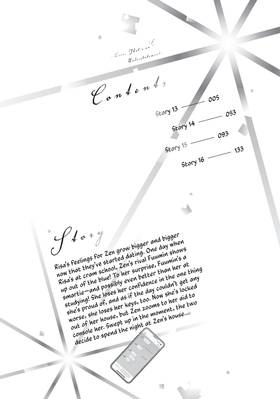 Contents
Story 13 005
Story 14 053
Story 15 093
Story 16 133
Story
Risa's feelings for Zen grow bigger and bigger
now that they've started dating. One day when
Risa's at cram school, Zen's rival Fuumin shows
up out of the blue! To her surprise, Fuumin's a
smartie—and possibly even better than her at
studying! She loses her confidence in the one thing
she's proud of, and as if the day couldn't get any
worse, she loses her keys, too. Now she's locked
out of her house, but Zen zooms to her aid to
console her. Swept up in the moment, the two
decide to spend the night at Zen's house...